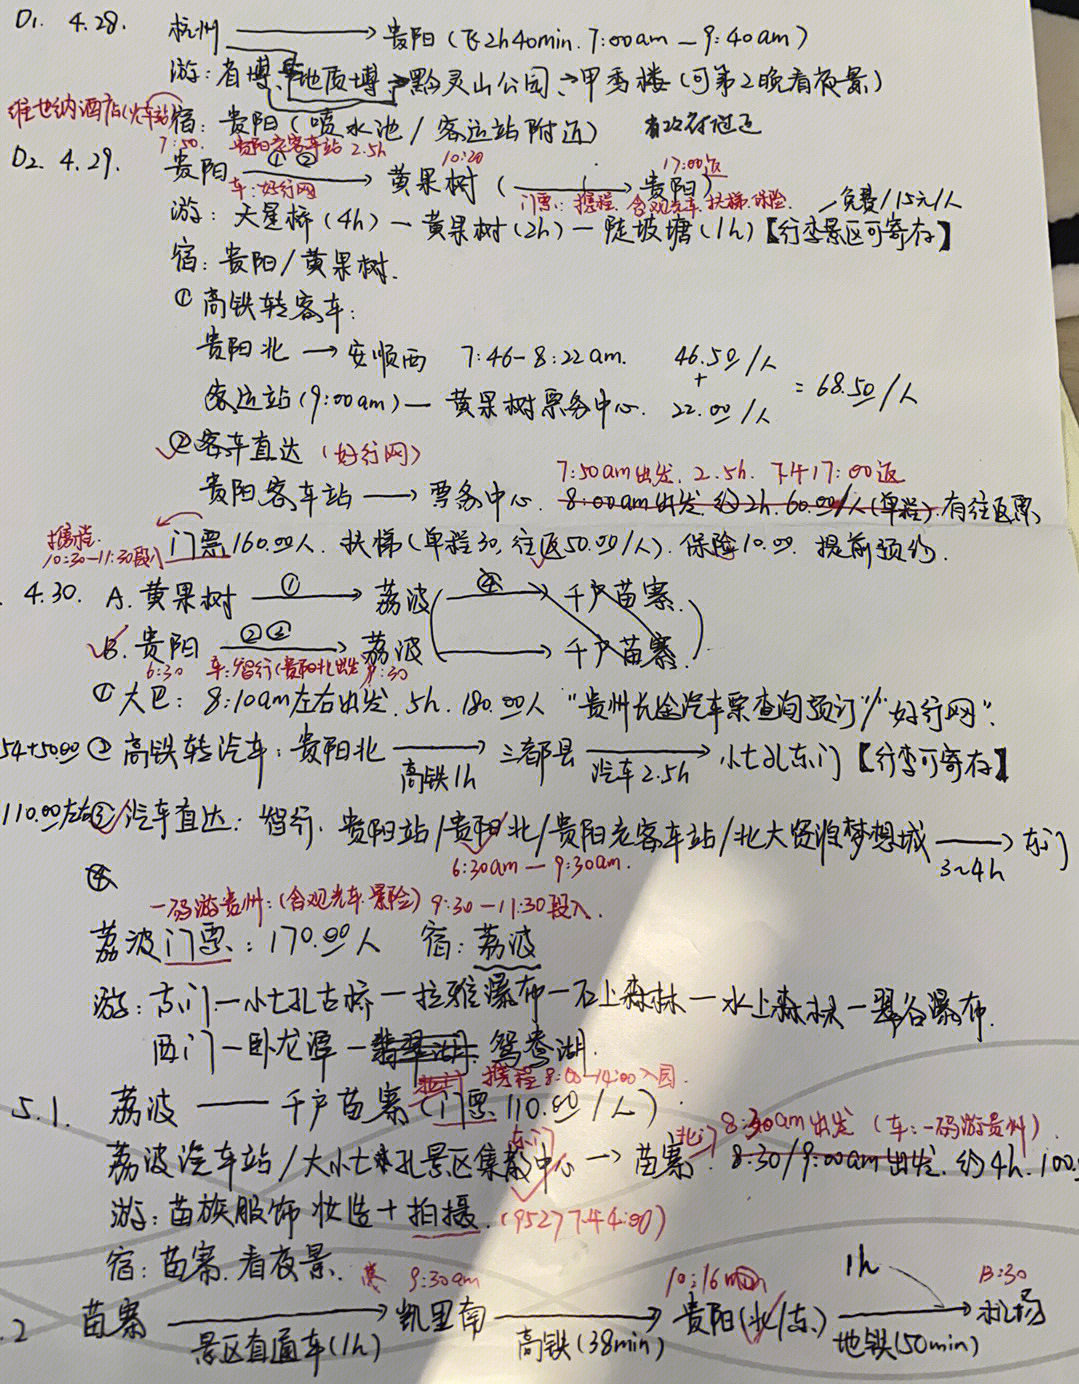 D1. 4.28. 杭州 → 贵阳 (飞2h40min. 7:00am — 9:40am)
游: 省博、地质博 → 黔灵山公园 → 甲秀楼 (可第2晚看夜景)
维也纳酒店(火车站)
宿: 贵阳 (喷水池 / 客运站附近)
7:50. 贵阳老客车站 2.5h 10:20 17:00返
D2. 4.29. 贵阳 ①② → 黄果树 ( → 贵阳)
车: 好行网 门票: 携程. 含观光车.扶梯.保险. 免费/15元/人
游: 天星桥 (4h) — 黄果树 (2h) — 陡坡塘 (1h) 【行李景区可寄存】
宿: 贵阳 / 黄果树.
① 高铁转客车:
贵阳北 → 安顺西 7:46-8:22am. 46.50/人
+ = 68.50/人
客运站 (9:00am) — 黄果树票务中心. 22.00/人
②客车直达 (好行网)
7:50am出发. 2.5h. 下午17:00返
贵阳客车站 → 票务中心. 8:00am出发 约2h. 60.00/人 (单程). 有往返票
携程.
10:30-11:30段入
门票160.00人. 扶梯 (单程30, 往返50.00/人). 保险10.00. 提前预约.
4.30. A. 黄果树 ① → 荔波 ④ → 千户苗寨.
B. 贵阳 ②③ → 荔波 → 千户苗寨.
6:30 车:智行(贵阳北出发) 9:30
① 大巴: 8:10am左右出发. 5h. 180.00人 "贵州长途汽车票查询预订"/"好行网".
54+50.00 ② 高铁转汽车: 贵阳北 → 三都县 → 小七孔东门 【行李可寄存】
高铁1h 汽车2.5h
110.00左右 ③ 汽车直达: 智行. 贵阳站/贵阳北/贵阳老客车站/北大资源梦想城 → 东门
6:30am — 9:30am. 3~4h
④
一码游贵州: (含观光车.景险) 9:30-11:30段入.
荔波门票: 170.00人 宿: 荔波
游: 东门 — 小七孔古桥 — 拉雅瀑布 — 石上森林 — 水上森林 — 翠谷瀑布.
西门 — 卧龙潭 — 翡翠湖 鸳鸯湖.
携程 8:00-14:00入园.
5.1. 荔波 —— 千户苗寨 (门票110.00/人).
东门 北门 8:30am出发 (车: 一码游贵州)
荔波汽车站/大小七孔景区集散中心 → 苗寨. 8:30/9:00am出发. 约4h. 100.
游: 苗族服饰妆造+拍摄. (9527744:00)
宿: 苗寨. 看夜景.
9:30am 10:16 1h 13:30
.2 苗寨 → 凯里南 → 贵阳 (北/东) → 机场
景区直通车(1h) 高铁(38min) 地铁(50min)